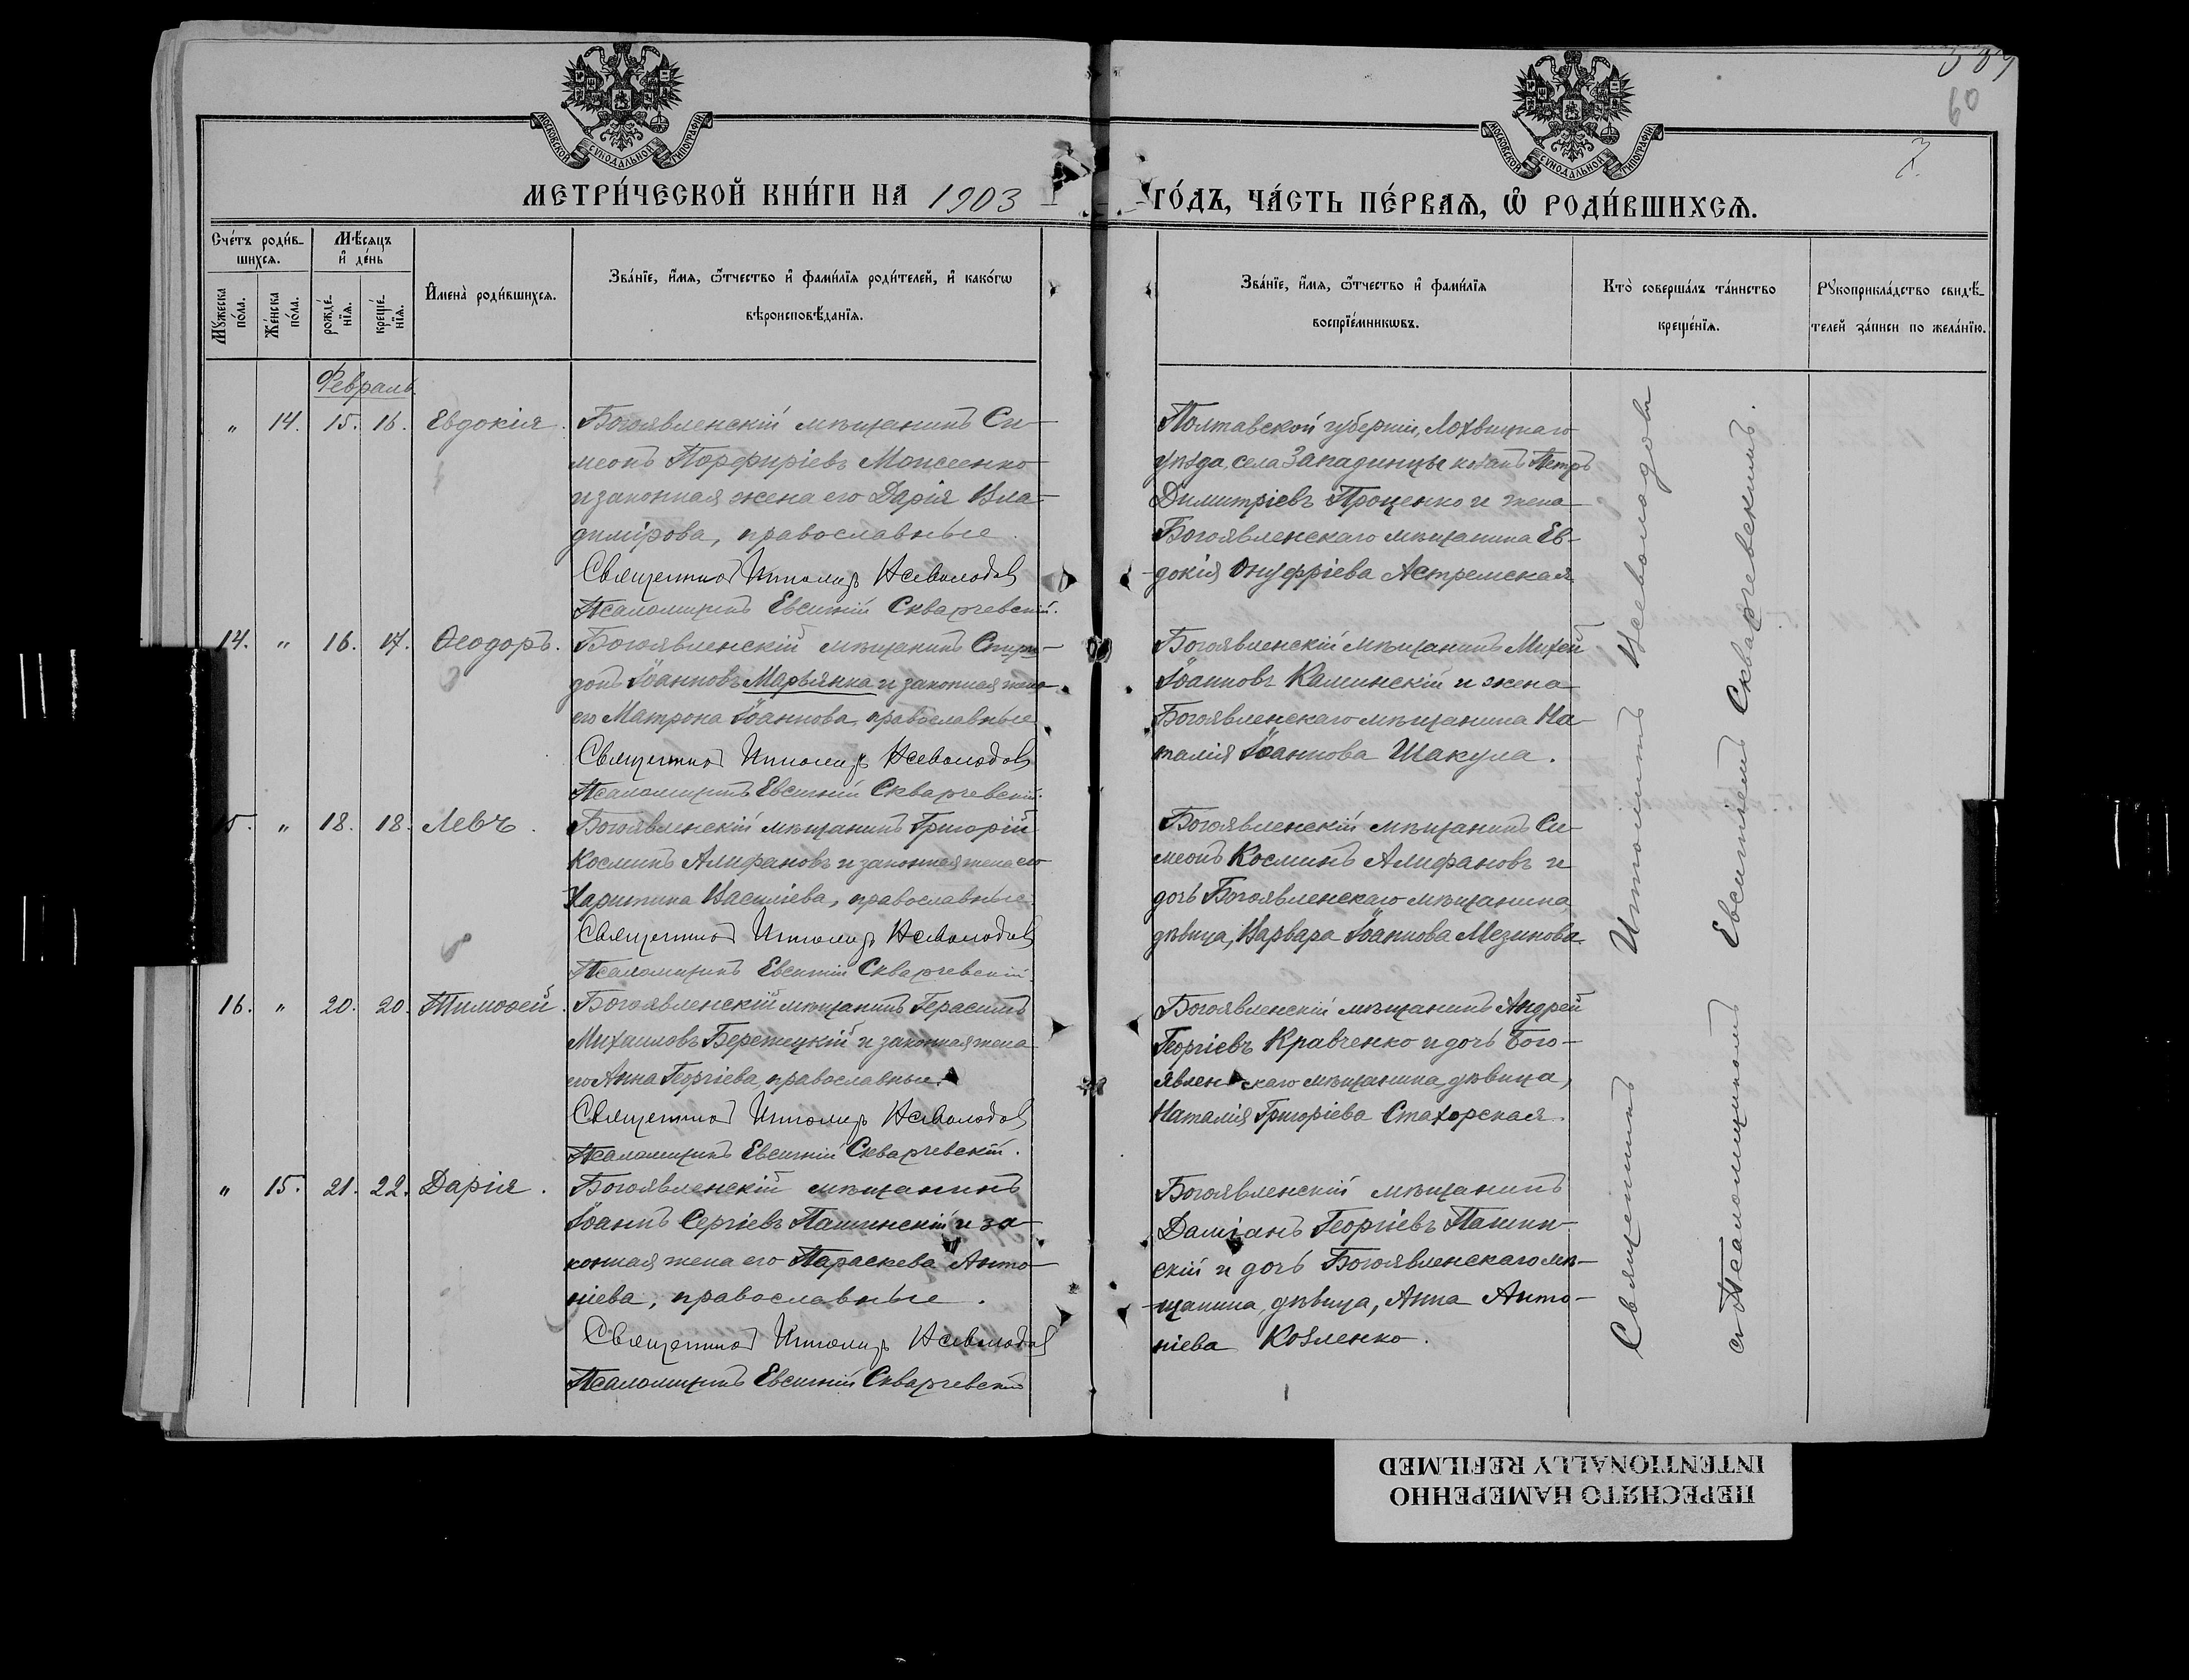 60
МОСКОВСКОЙ СѴНОДАЛЬНОЙ ТИПОГРАФІИ
МОСКОВСКОЙ СѴНОДАЛЬНОЙ ТИПОГРАФІИ
МЕТРИ́ЧЕСКОЙ КНИ́ГИ НА 1903 ГО́ДЪ, ЧА́СТЬ ПЕ́РВАѦ, Ѽ РОДИ́ВШИХСѦ.
Сче́тъ роди́в-
шихсѧ.
Мѣ́сѧцъ
и҆ де́нь
Мꙋ́жеска по́ла.
Же́нска по́ла.
рожде́-
нїѧ.
креще́-
нїѧ.
И҆мена̀ роди́вшихсѧ.
Зва́нїе, и҆́мѧ, ѻ҆́тчество и҆ фами́лїѧ роди́телей, и҆ како́гѡ
вѣроисповѣ́данїѧ.
Зва́нїе, и҆́мѧ, ѻ҆́тчество и҆ фами́лїѧ
воспрїе́мникѡвъ.
Кто̀ соверша́лъ та́инство
креще́нїѧ.
Рꙋкоприкла́дство свидѣ́-
телей за́писи по жела́нїю.
Февраль
" 14. 15. 16. Евдокія. Богоявленскій мѣщанинъ Си-
меонъ Порфиріевъ Моисеенко
и законная жена его Дарія Вла-
димірова, православные.
Священникъ Всеволодовъ
Псаломщикъ Евсигній Скваргевскій.
Полтавской губерніи, Лохвицкаго
уѣзда, села Западинцы козакъ Петръ
Димитріевъ Проценко и жена
Богоявленскаго мѣщанина Ев-
докія Онуфріева Астремская
14. " 16. 17. Ѳеодоръ. Богоявленскій мѣщанинъ Спири-
донъ Іоанновъ Марьянка и законная жена
его Матрона Іоаннова, православные
Священникъ Всеволодовъ
Псаломщикъ Евсигній Скваргевскій.
Богоявленскій мѣщанинъ Михей
Іоанновъ Каминскій и жена
Богоявленскаго мѣщанина На-
талія Іоаннова Шакула.
5. " 18. 18. Левъ. Богоявленскій мѣщанинъ Григорій
Косминъ Алифановъ и законная жена его
Харитина Василіева, православные
Священникъ Всеволодовъ
Псаломщикъ Евсигній Скваргевскій
Богоявленскій мѣщанинъ Си-
меонъ Косминъ Алифановъ и
дочь Богоявленскаго мѣщанина
дѣвица, Варвара Іоаннова Мезинова.
16. " 20. 20. Тимоѳей. Богоявленскій мѣщанинъ Герасимъ
Михаиловъ Бережецкій и законная жена
его Анна Георгіева, православные.
Священникъ Всеволодовъ
Псаломщикъ Евсигній Скваргевскій.
Богоявленскій мѣщанинъ Андрей
Георгіевъ Кравченко и дочь Бого-
явленскаго мѣщанина, дѣвица,
Наталія Григоріева Стахорская.
" 15. 21. 22. Дарія. Богоявленскій мѣщанинъ
Іоаннъ Сергіевъ Пашинскій и за-
конная жена его Параскева Анто-
ніева, православные.
Священникъ Всеволодовъ
Псаломщикъ Евсигній Скваргевскій
Богоявленскій мѣщанинъ
Даміанъ Георгіевъ Пашин-
скій и дочь Богоявленскаго мѣ-
щанина, дѣвица, Анна Анто-
ніева Козленко.
Священникъ Всеволодовъ
съ Псаломщикомъ Евсигніемъ Скваргевскимъ.
ПЕРЕСНЯТО НАМЕРЕННО
INTENTIONALLY REFILMED